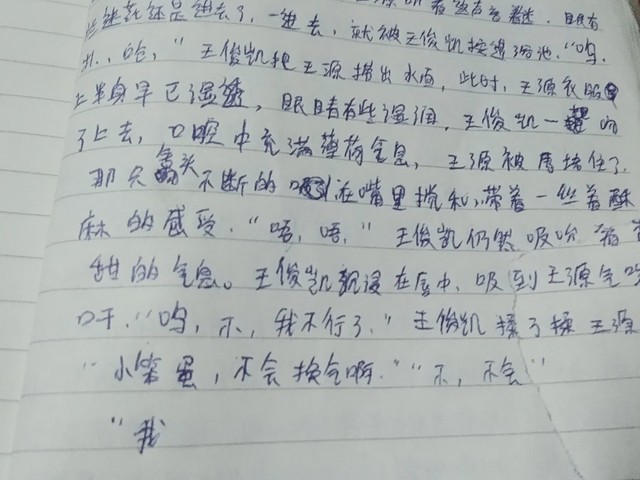 些迷茫还是进去了,一进去,就被王俊凯按进浴池."呜.
王俊凯把王源捞出水面,此时,王源衣服
上半身早已湿透,眼睛有些湿润,王俊凯一 的
了上去,口腔中充满薄荷气息,王源被唇堵住了.
那只舌头不断的 在嘴里搅和,带着一丝着酥
麻的感受."唔,唔,"王俊凯仍然吸吮着
甜的气息。王俊凯沉浸在唇中,吸到王源气
口干."呜,不,我不行了."王俊凯揉了揉王源
"小笨蛋,不会换气啊.""不,不会"
"我